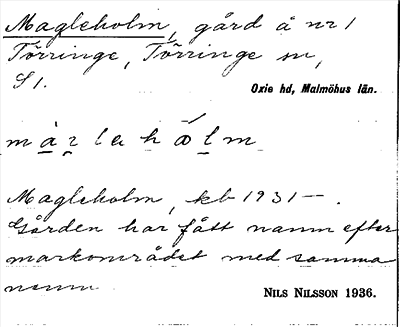 Magleholm, gård å nr 1
Törringe, Törringe sn,
S1.
Oxie hd, Malmöhus län.
Magleholm, kb 1931—.
Gården har fått namn efter
markområdet med samma
namn.
NILS NILSSON 1936.